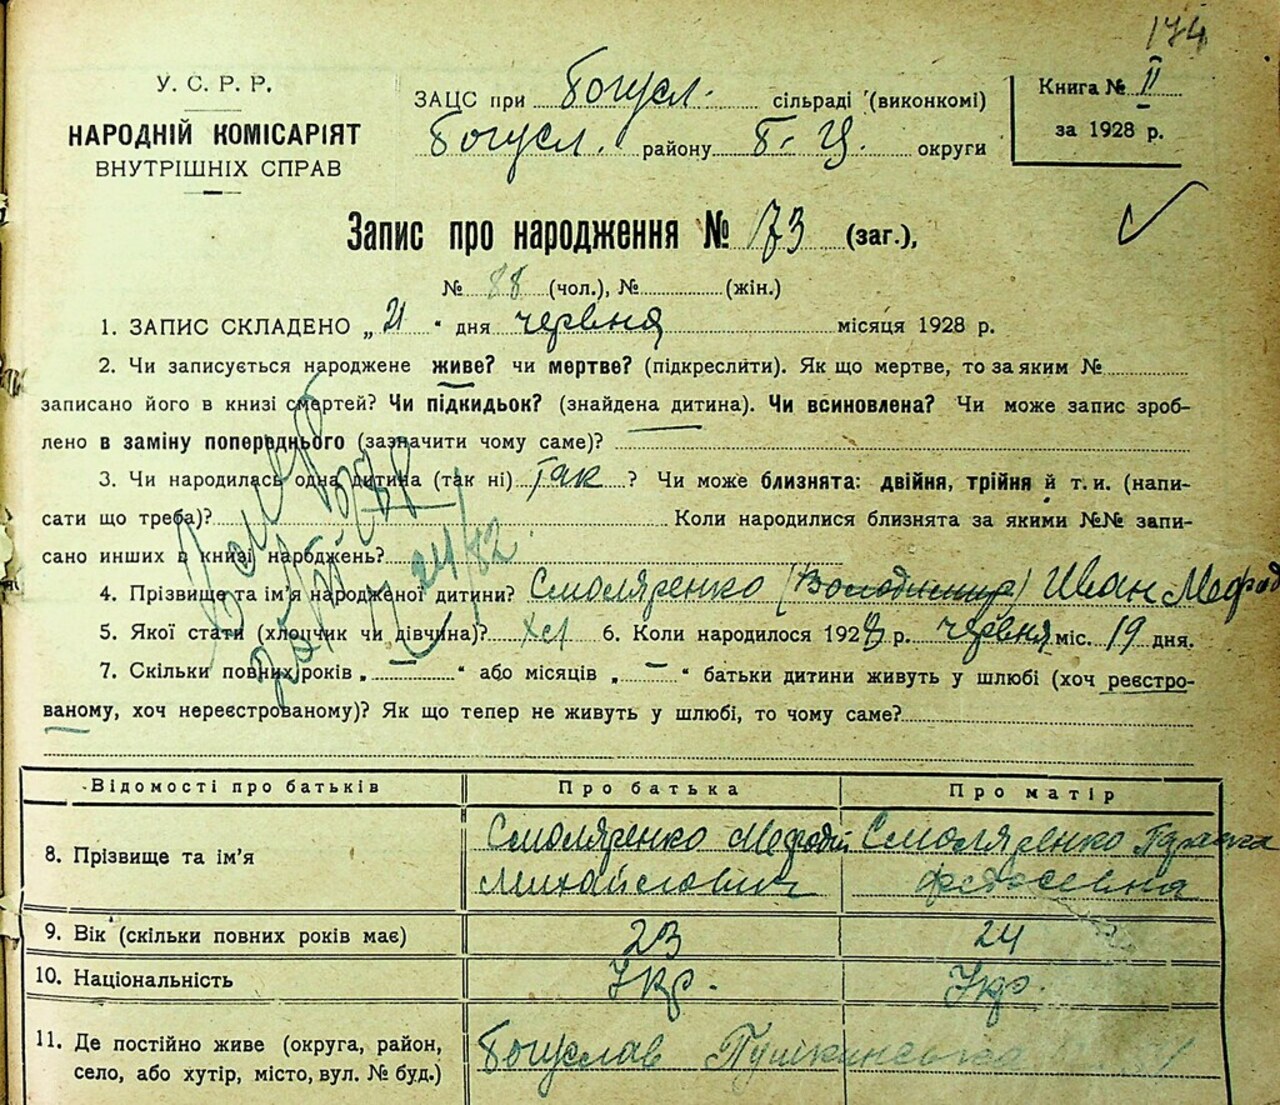 174
У. С. Р. Р.
НАРОДНІЙ КОМІСАРІЯТ
ВНУТРІШНІХ СПРАВ
ЗАЦС при Богусл. сільраді (виконкомі)
Богусл. району Б. Ц. округи
Книга № II
за 1928 р.
Запис про народження № 173 (заг.),
№ 88 (чол.), № (жін.)
1. ЗАПИС СКЛАДЕНО „21“ дня червня місяця 1928 р.
2. Чи записується народжене живе? чи мертве? (підкреслити). Як що мертве, то за яким №
записано його в книзі смертей? Чи підкидьок? (знайдена дитина). Чи всиновлена? Чи може запис зроб-
лено в заміну попереднього (зазначити чому саме)?
3. Чи народилась одна дитина (так ні) так ? Чи може близнята: двійня, трійня й т. и. (напи-
сати що треба)? Коли народилися близнята за якими №№ запи-
сано инших в книзі народжень?
24/82
4. Прізвище та ім’я народженої дитини? Смоляренко (Володимир) Іван Мефод
5. Якої стати (хлопчик чи дівчина)? хл 6. Коли народилося 1928 р. червня міс. 19 дня.
7. Скільки повних років „ — “ або місяців „ — “ батьки дитини живуть у шлюбі (хоч реєстро-
ваному, хоч нереєстрованому)? Як що тепер не живуть у шлюбі, то чому саме?
Відомості про батьків Про батька Про матір
8. Прізвище та ім’я Смоляренко Мефодій Михайлович Смоляренко Параска Федосеевна
9. Вік (скільки повних років має) 23 24
10. Національність Укр. Укр.
11. Де постійно живе (округа, район, село, або хутір, місто, вул. № буд.) Богуслав Пушкинська